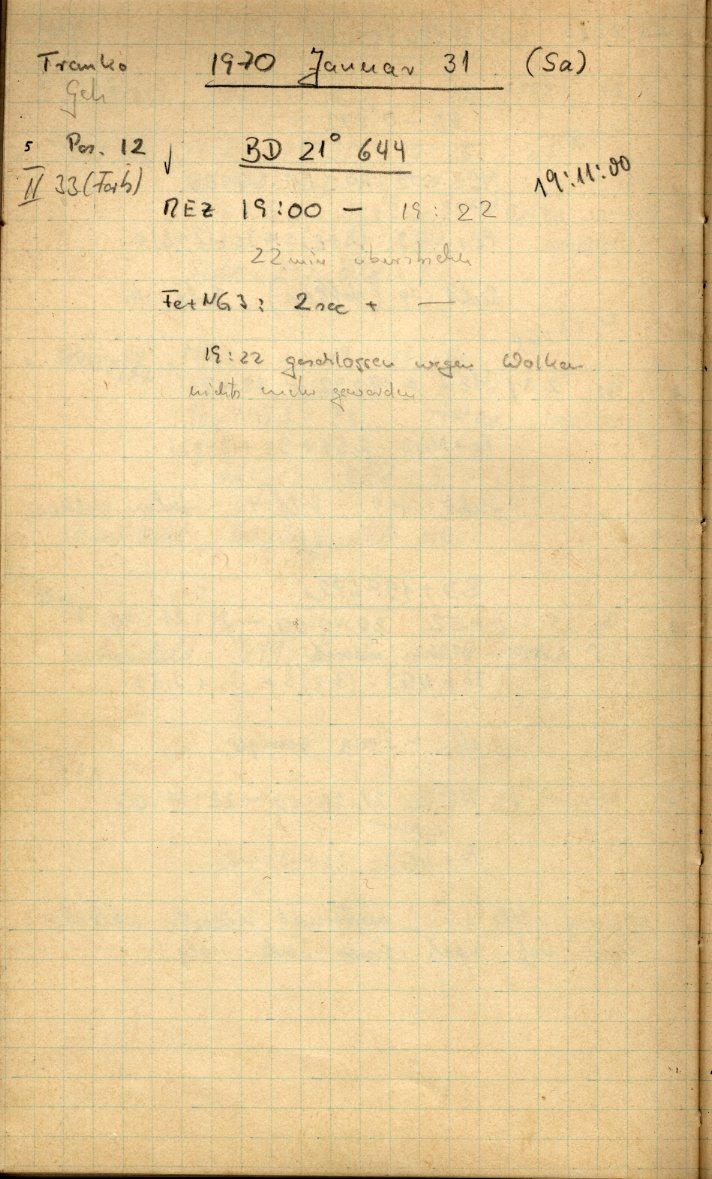 Franko 1970 Januar 31 (Sa)
Geh
5 Pos. 12 BD 21° 644
II 33 (Farb) 19:11:00
MEZ 19:00 – 19:22
22 min
Fe+NG3: 2sec + —
19:22 geschlossen wegen Wolken
nichts mehr geworden